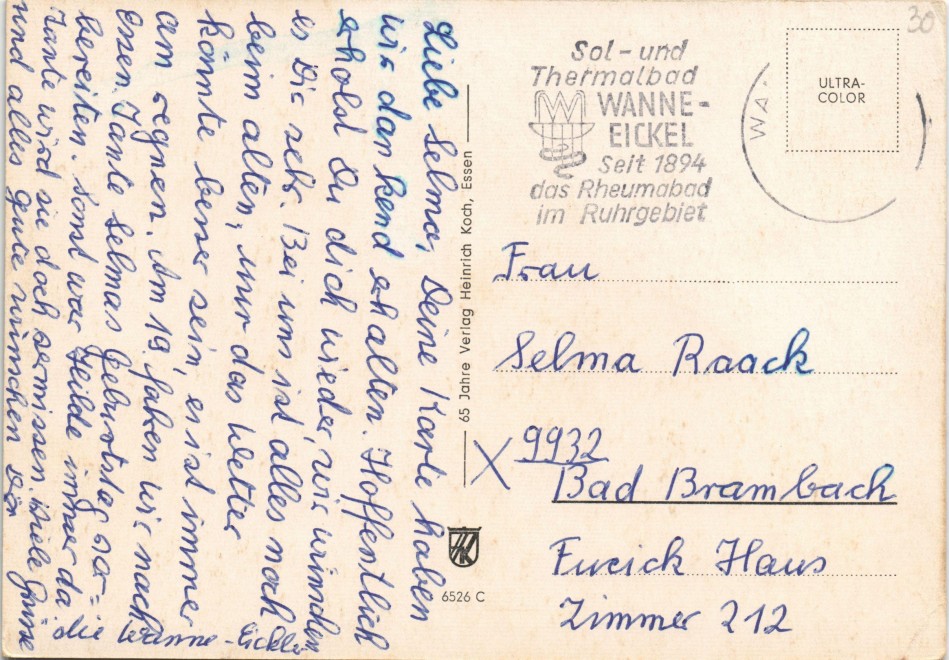 Liebe Selma, Deine Karte haben
wir dankend erhalten. Hoffentlich
erholst Du dich wieder, wir wünschen
es Dir sehr. Bei uns ist alles noch
beim alten, nur das Wetter
könnte besser sein, es ist immer
am regnen. Am 19. fahren wir nach
Essen, Tante Selmas Geburtstag vor=
bereiten. Sonst war Heilde immer da
Tante wird sie doch vermissen. Viele Grüße
und alles gute wünschen Dir
die Wanne-Eickler
65 Jahre Verlag Heinrich Koch, Essen
HK
6526 C
Sol- und
Thermalbad
WANNE-
EICKEL
Seit 1894
das Rheumabad
im Ruhrgebiet
WA
ULTRA-
COLOR
30
Frau
Selma Raack
X 9932
Bad Brambach
Fucick Haus
Zimmer 212